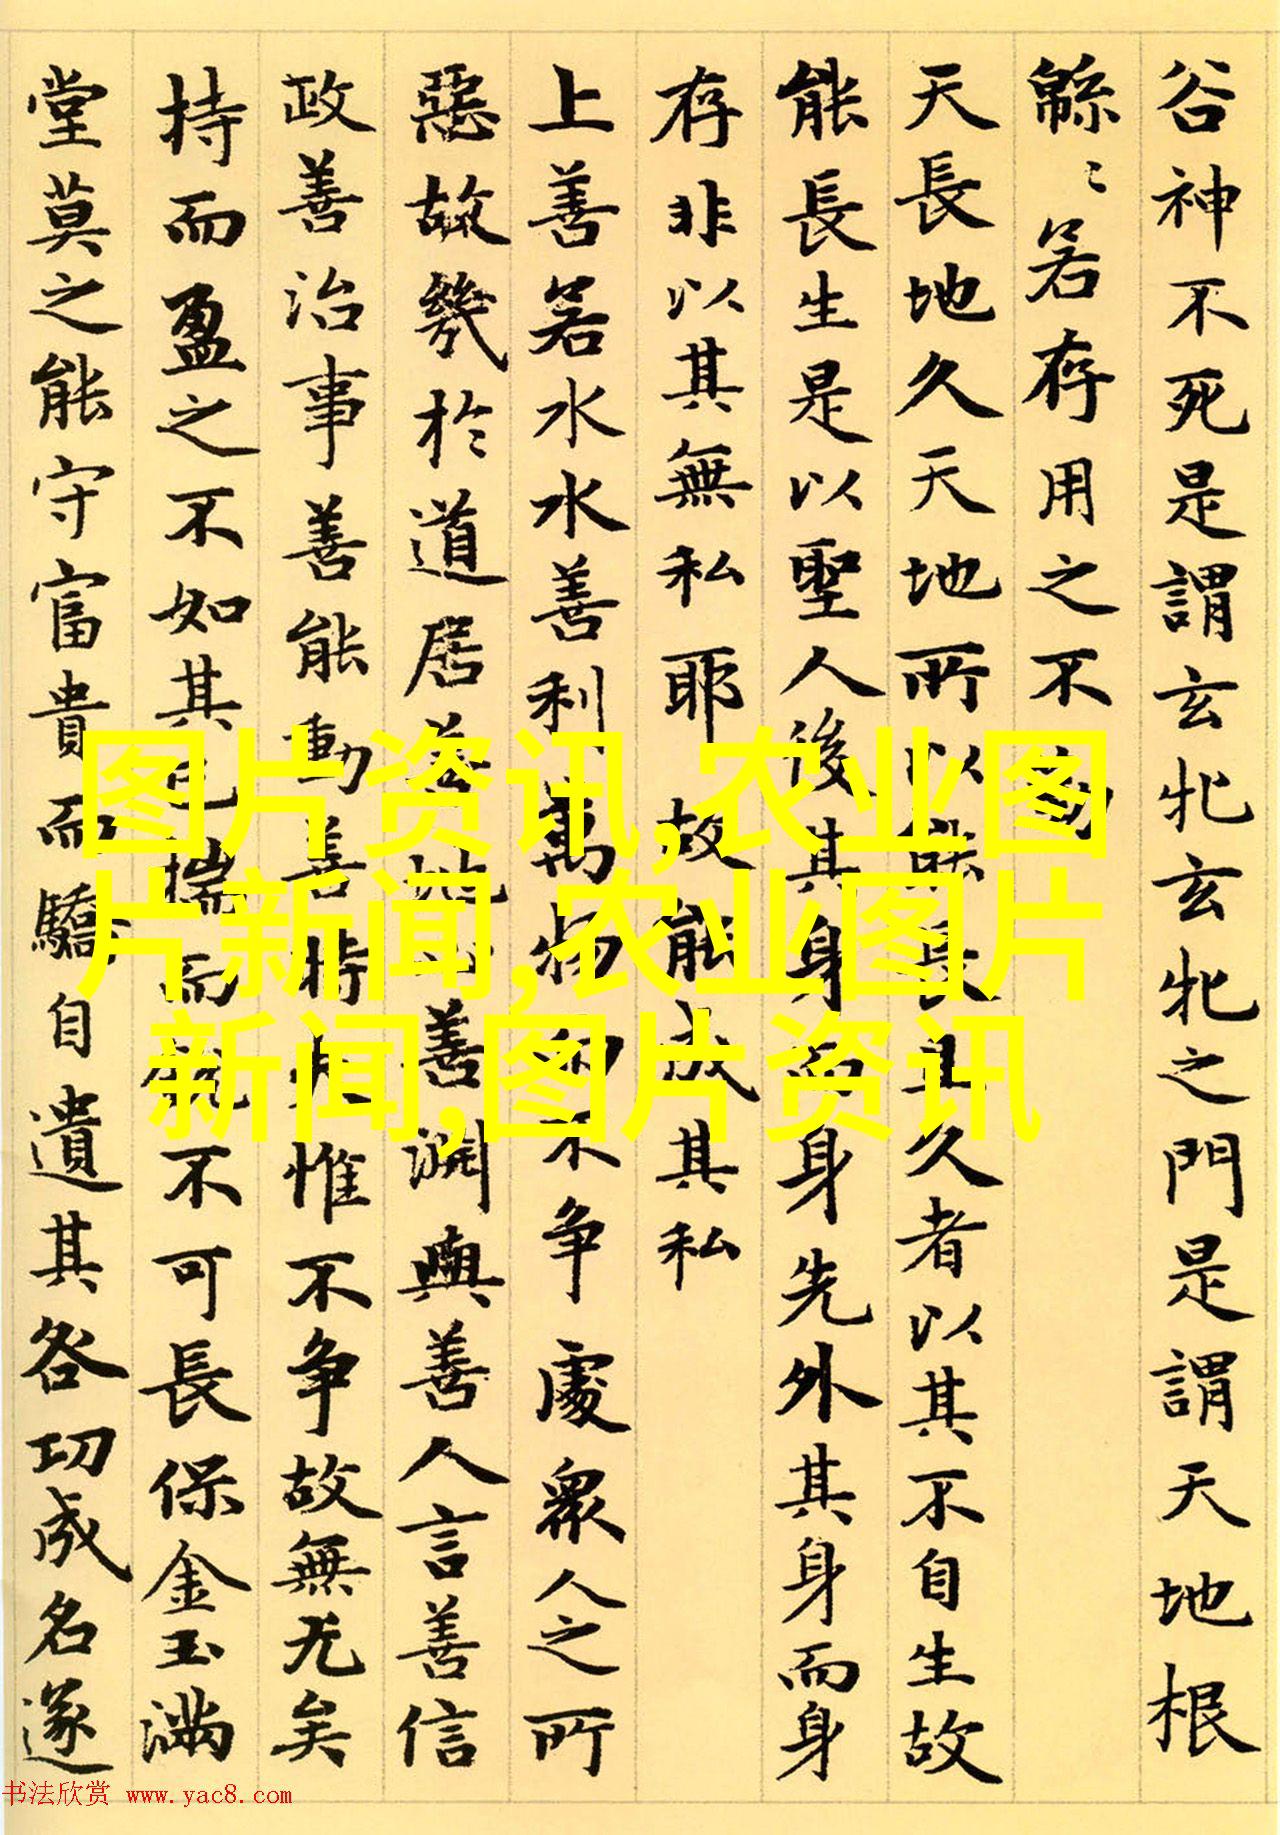 谷神不死是謂玄牝玄牝之門是謂天地根
緜〻若存用之不
天長地久天地所以能長且久者以其不自生故
能長生是以聖人後其身而身先外其身而身
存非以其無私耶故能成其私
上善若水水善利萬物而不争處衆人之所
惡故幾於道居善地心善渊與善人言善信
政善治事善能動善時夫惟不争故無尤矣
持而盈之不如其已揣而銳不可長保金玉滿
堂莫之能守富貴而驕自遺其咎功成名遂
图片资讯,农业图
片新闻,农业图片
新闻,图片资讯
书法欣赏 www.yac8.com